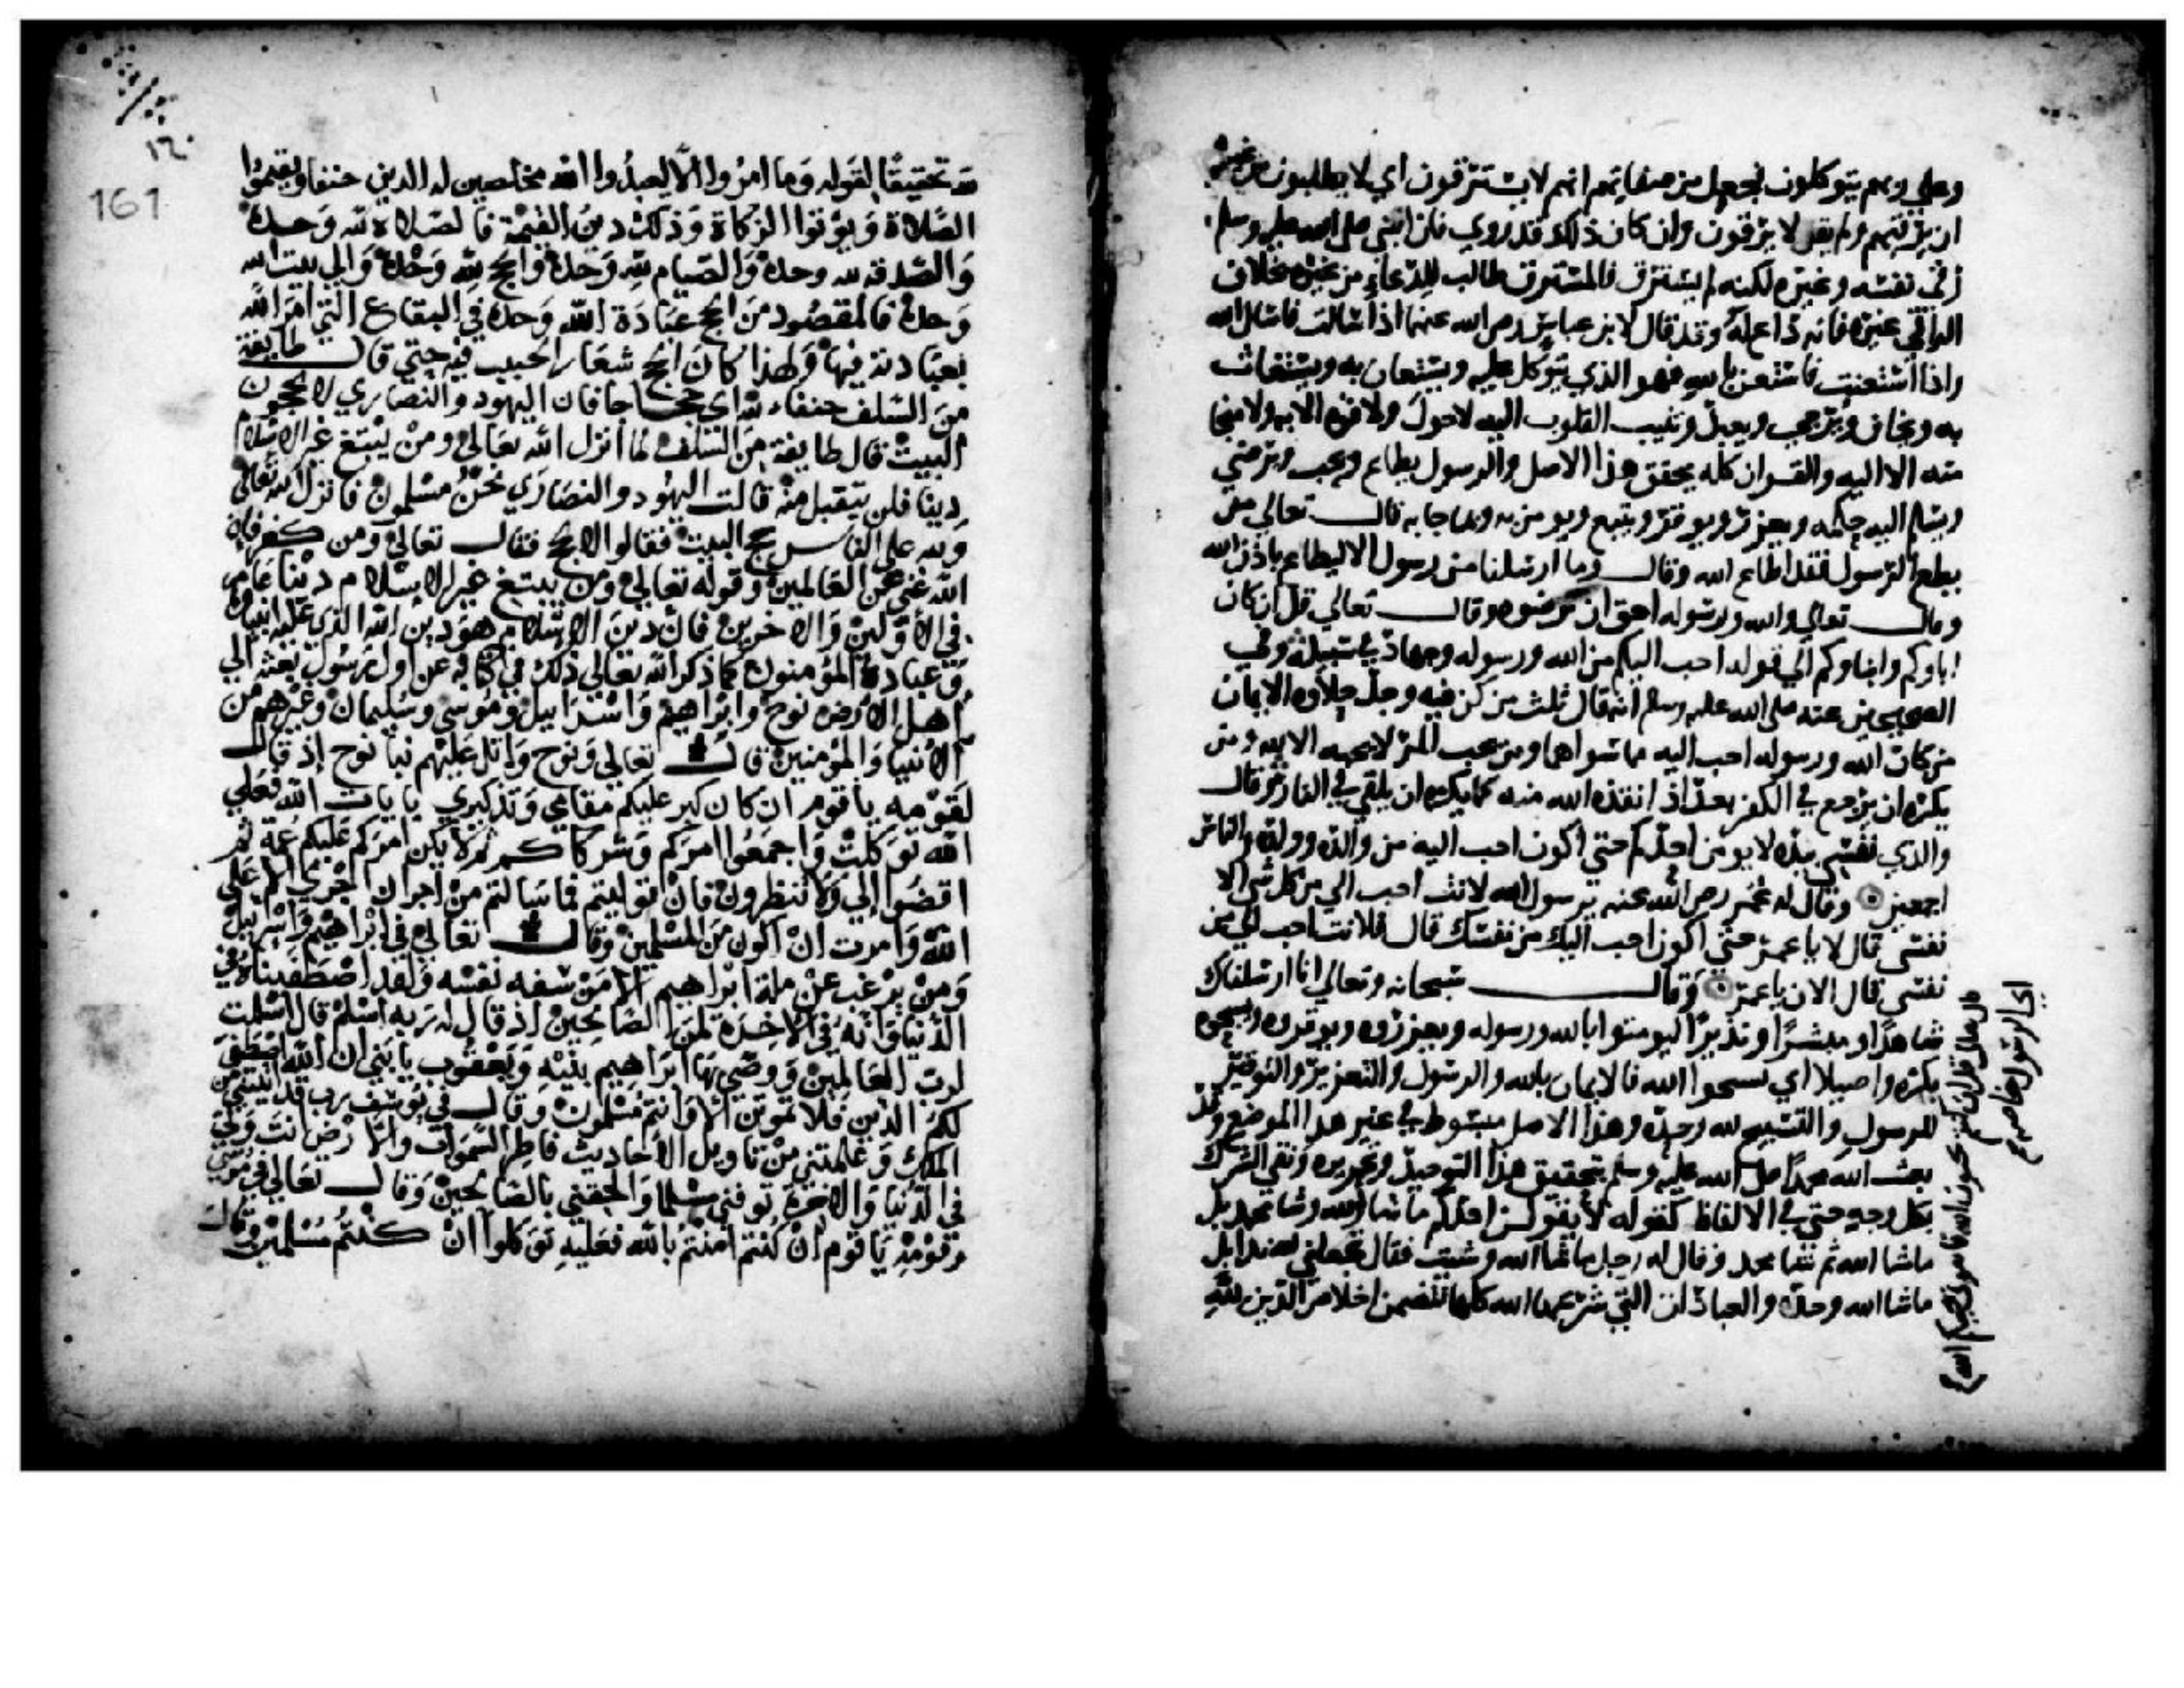 وعلي ربهم يتوكلون فجعل من صفاتهم انهم لا يسترقون اي لا يطلبون من غيرهم
ان يرقيهم ولم يقل لا يرقون وان كان ذلك قد روي فان النبي صلي الله عليه وسلم
رقي نفسه وغيره لكنه لم يسترق فالمسترق طالب للدعاء من غيره بخلاف
الراقي غيره فانه داع له وقد قال لابن عباس رضي الله عنهما اذا سالت فاسال الله
واذا استعنت فاستعن بالله فهو الذي يتوكل عليه ويستعان به ويستغاث
به ويخاف ويرجي ويعبد وتنيب القلوب اليه لا حول ولا قوة الا به ولا منجا
منه الا اليه والقران كله يحقق هذا الاصل والرسول يطاع ويحب ويرضي
ويسلم اليه حكمه ويعزر ويوقر ويتبع ويومن به وبما جا به قال تعالي من
يطع الرسول فقد اطاع الله وقال وما ارسلنا من رسول الا ليطاع باذن الله
وقال تعالي والله ورسوله احق ان يرضوه وقال تعالي قل ان كان
اباوكم وابناوكم الي قوله احب اليكم من الله ورسوله وجهاد في سبيله وفي
الصحيحين عنه صلي الله عليه وسلم انه قال ثلث من كن فيه وجد حلاوة الايمان
من كان الله ورسوله احب اليه مما سواهما ومن يحب المرء لا يحبه الا لله ومن
يكره ان يرجع في الكفر بعد اذ انقذه الله منه كما يكره ان يلقي في النار وقال
والذي نفسي بيده لا يومن احدكم حتي اكون احب اليه من والده وولده والناس
اجمعين وقال له عمر رضي الله عنه يرسول الله لانت احب الي من كل شي الا
نفسي قال لا يا عمر حتي اكون احب اليك من نفسك قال فلانت احب الي من
نفسي قال الان يا عمر وقال سبحانه وتعالي انا ارسلناك
شاهدا ومبشرا ونذيرا ليومنوا بالله ورسوله ويعزروه ويوقروه ويسبحوه
بكرة واصيلا اي تسبحوا الله فالايمان بالله والرسول والتعزير والتوقير
للرسول والتسبيح لله وحده وهذا الاصل مبسوط في غير هذا الموضع وقد
بعث الله محمدا صلي الله عليه وسلم بتحقيق هذا التوحيد وتجريده ونفي الشرك
بكل وجه حتي في الالفاظ كقوله لا يقولن احدكم ما شا الله وشا محمد بل
ما شا الله ثم شا محمد وقال له رجل ما شا الله وشيت فقال تجعلني لله ندا بل
ما شا الله وحده والعبادات التي شرعها الله كلها تتضمن اخلاص الدين لله
قال تعالي قل ان كنتم تحبون الله فاتبعوني يحببكم الله
اي الرسول خاصه
١٦٠
161
لله تحقيقا لقوله وما امروا الا ليعبدوا الله مخلصين له الدين حنفا ويقيموا
الصلاة ويؤتوا الزكاة وذلك دين القيمة فالصلاة لله وحده
والصدقه لله وحده والصيام لله وحده والحج لله وحده والي بيت الله
وحده فالمقصود من الحج عبادة الله وحده في البقاع التي امر الله
بعبادته فيها ولهذا كان الحج شعار الحبيب فيه حتي قال طايفة
من السلف حنفاء لله اي حجاجا فان اليهود والنصاري لا يحجون
البيت قال طايفة من السلف لما أنزل الله تعالي ومن يبتغ غير الاسلام
دينا فلن يتقبل منه قالت اليهود والنصاري نحن مسلمون فانزل الله تعالي
ولله علي الناس حج البيت فقالوا لا نحج فقال تعالي ومن كفر فان
الله غني عن العالمين وقوله تعالي ومن يبتغ غير الاسلام دينا عام
في الأولين والاخرين فان دين الاسلام هو دين الله الذي عليه انبياوه
وعباده المؤمنون كما ذكر الله تعالي ذلك في كتابه عن اول رسول بعثه الي
أهل الارض نوح وابراهيم واسرائيل وموسي وسليمان وغيرهم من
الانبيا والمؤمنين قال تعالي ونوح واتل عليهم نبا نوح إذ قال
لقومه يا قوم ان كان كبر عليكم مقامي وتذكيري بايات الله فعلي
الله توكلت فاجمعوا امركم وشركاكم ثم لا يكن امركم عليكم غمة ثم
اقضوا إلي ولا تنظرون فان توليتم فما سالتم من اجر ان اجري الا علي
الله وامرت ان اكون من المسلمين وقال تعالي في ابراهيم واسرايل
ومن يرغب عن ملة ابراهيم الا من سفه نفسه ولقد اصطفيناه في
الدنيا وانه في الاخرة لمن الصالحين إذ قال له ربه اسلم قال اسلمت
لرب العالمين ووصي بها ابراهيم بنيه ويعقوب يا بني ان الله اصطفي
لكم الدين فلا تموتن الا وانتم مسلمون وقال في يوسف رب قد اتيتني من
الملك وعلمتني من تاويل الاحاديث فاطر السموات والارض انت وليي
في الدنيا والاخرة توفني مسلما والحقني بالصالحين وقال تعالي في موسي
وقومه يا قوم إن كنتم امنتم بالله فعليه توكلوا ان كنتم مسلمين وقال